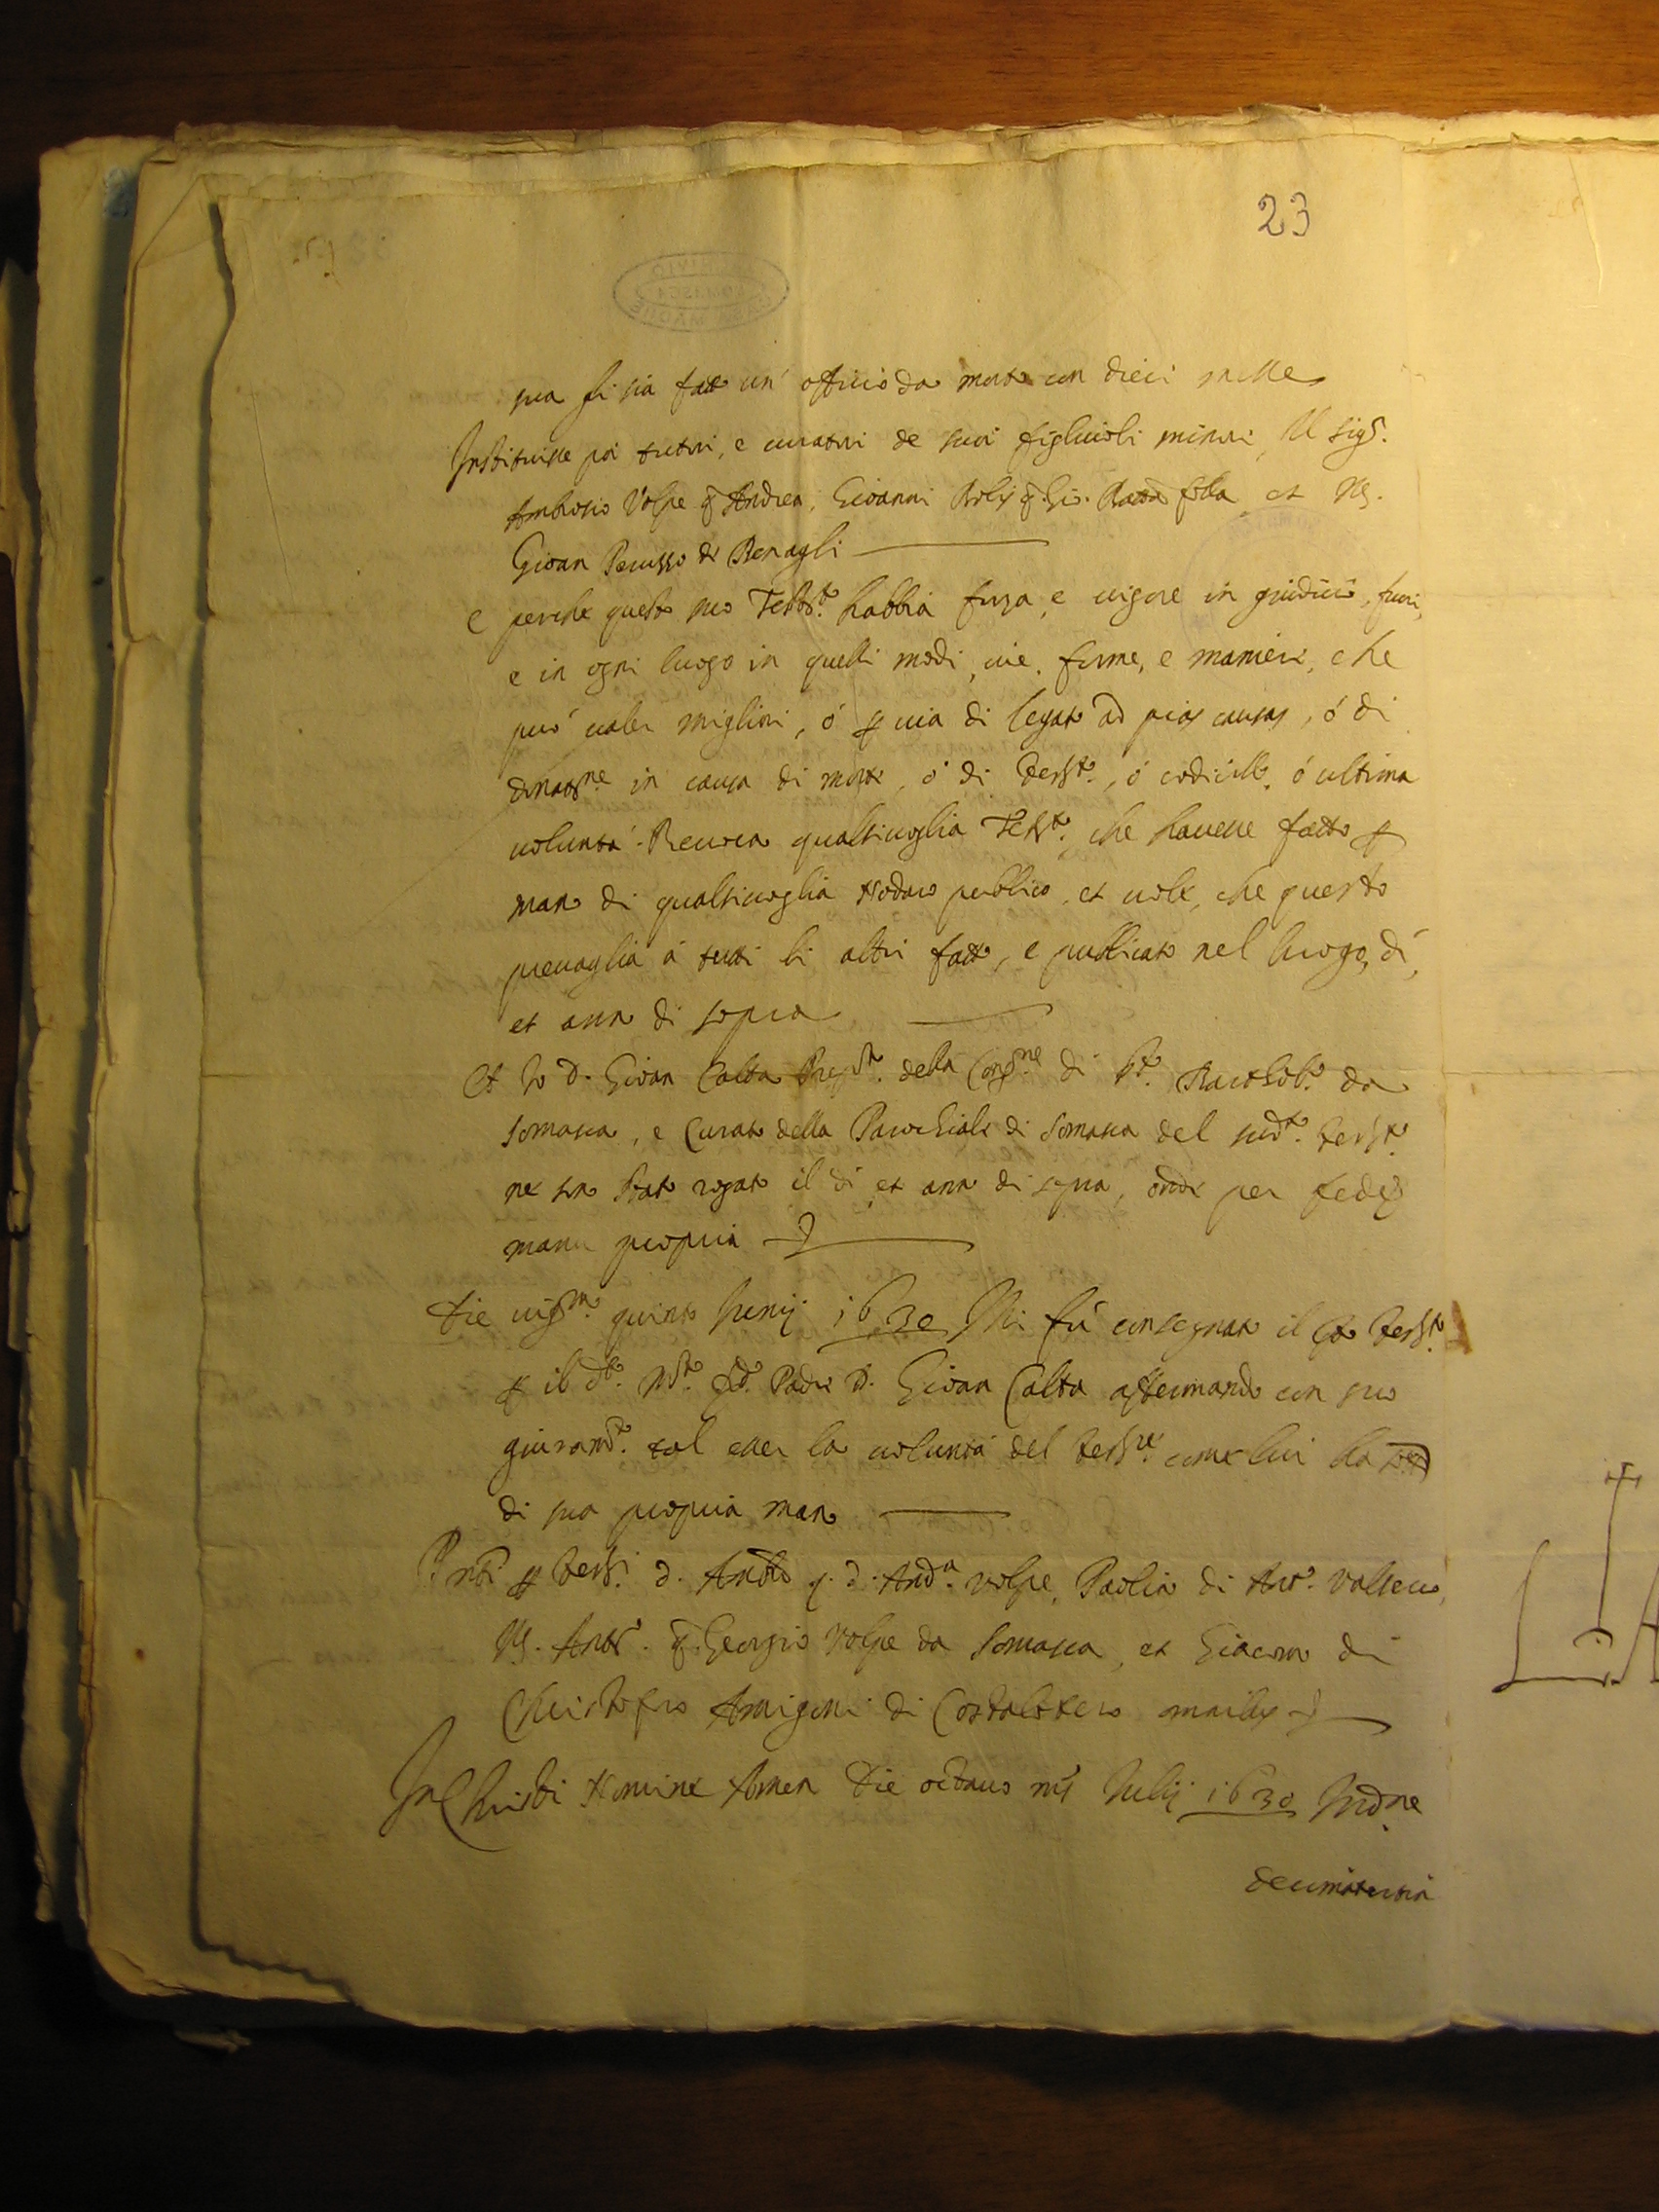 23
sua si sia fatto un' officio da morto con dieci messe
Instituisse poi tutori, e curatori de suoi figliuoli minori, Il sigr.
Ambrosio Volpe q. Andrea, Giovanni q. Gio. et Ms.
Gioan de Benagli
e perche questo suo Testto. habbia forza, e vigore in giudicio, fuori,
e in ogni luogo in quelli modi, vie, forme, e maniere, che
può valer migliori, ó p via di legato ad pias causas, ó di
donatne. in causa di morte, ó di Testto., ó codicillo, ó ultima
voluntá. Revoca qualsivoglia Testto. che havesse fatto p
mano di qualsivoglia Nodaro publico, et vole, che questo
prevaglia á tutti li altri fatto, e publicato nel luogo, dí,
et anno di sopra
Et Io D. Gioan Calta della Congne. di Sto. da
Somasca, e Curato della Parochiale di Somasca del sudto. testto.
ne son stato rogato il dí et anno di sopra, onde per fede
manu propria
Die vigmo. quinto Junij 1630 Mi fú consegnato il testto.
p il dto. Padre D. Gioan Calta affermando con suo
giuramto. tal esser la voluntá del testre. come lui ha
di sua propria mano
p testi. d. q. d. Anda. Volpe, di Anto.
Ms. Anto. q. Georgio Volpe da Somasca, et Giacomo di
Christofro Amigoni di
In Christi Nomine Amen Die octavo mēs Julij 1630 Indne.
decimatertia